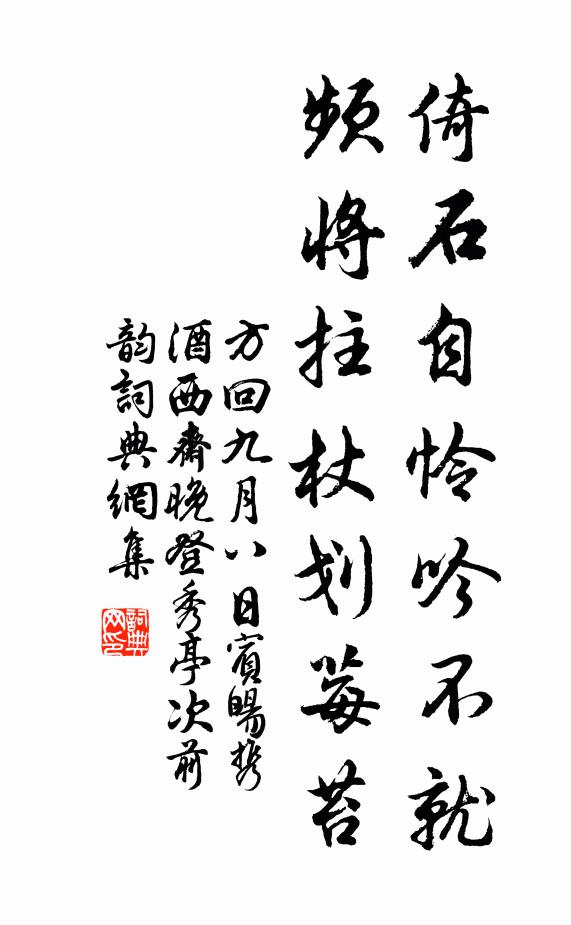 倚石自怜吟不就
频将拄杖划莓苔
方回九月八日宾旸携
酒西斋晚登秀亭次前
韵詞典網集
詞典
网印